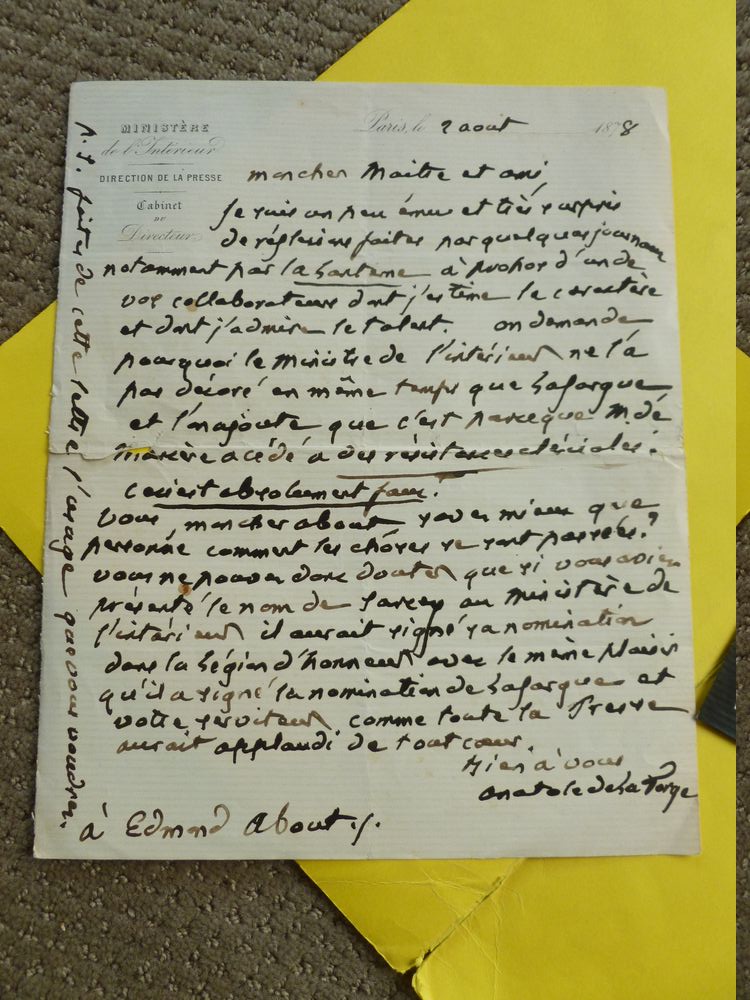 MINISTÈRE
de l'Intérieur
DIRECTION DE LA PRESSE
Cabinet
DU
Directeur
Paris, le 2 aout 1878
mon cher Maitre et ami,
Je suis un peu ému et très surpris
de réflexions faites par quelques journaux
notamment par la Lanterne à propos d'un de
vos collaborateurs dont j'estime le caractère
et dont j'admire le talent. on demande
pourquoi le Ministre de l'intérieur ne l'a
pas décoré en même temps que Lafargue
et l'on ajoute que c'est parceque M. de
Marcère a cédé à des résistances cléricales.
Ceci est absolument faux.
Vous, mon cher About, savez mieux que
personne comment les choses se sont passées.
vous ne pouvez donc douter que si vous aviez
présenté le nom de Sarcey au Ministère de
l'intérieur il aurait signé sa nomination
dans la Légion d'honneur avec le même plaisir
qu'il a signé la nomination de Lafargue et
votre serviteur comme toute la Presse
aurait applaudi de tout cœur.
Bien à vous
Anatole de La Forge
à Edmond About.
P. S. faites de cette lettre l'usage que vous voudrez.